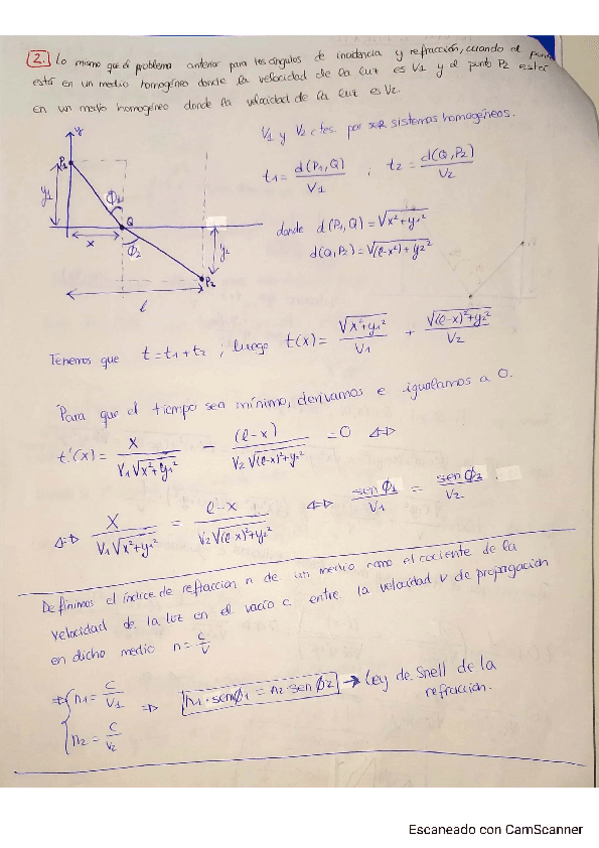 2. Lo mismo que el problema anterior para los ángulos de incidencia y refracción, cuando el punto
está en un medio homogéneo donde la velocidad de la luz es V1 y el punto P2 está
en un medio homogéneo donde la velocidad de la luz es V2.
V1 y V2 ctes. por ser sistemas homogéneos.
t1 = d(P1,Q)/V1 ; t2 = d(Q,P2)/V2
donde d(P1,Q) = √(x²+y1²)
d(Q,P2) = √((l-x²)+y2²
y
P1
y1
ϕ1
Q
x
ϕ2
y2
P2
l
Tenemos que t = t1+t2 ; luego t(x) = √(x²+y1²)/V1 + √((l-x)²+y2²)/V2
Para que el tiempo sea mínimo, derivamos e igualamos a 0.
t'(x) = x/(V1√(x²+y1²)) - (l-x)/(V2√((l-x)²+y2²)) = 0 ⇔
⇔ x/(V1√(x²+y1²)) = l-x/(V2√((l-x)²+y2²)) ⇔ sen ϕ1/V1 = sen ϕ2/V2.
Definimos el índice de refracción n de un medio como el cociente de la
velocidad de la luz en el vacío c entre la velocidad v de propagación
en dicho medio n = c/v
⇒ { n1 = c/V1
n2 = c/V2
⇒ n1·senϕ1 = n2·senϕ2 → Ley de Snell de la
refracción.
Escaneado con CamScanner